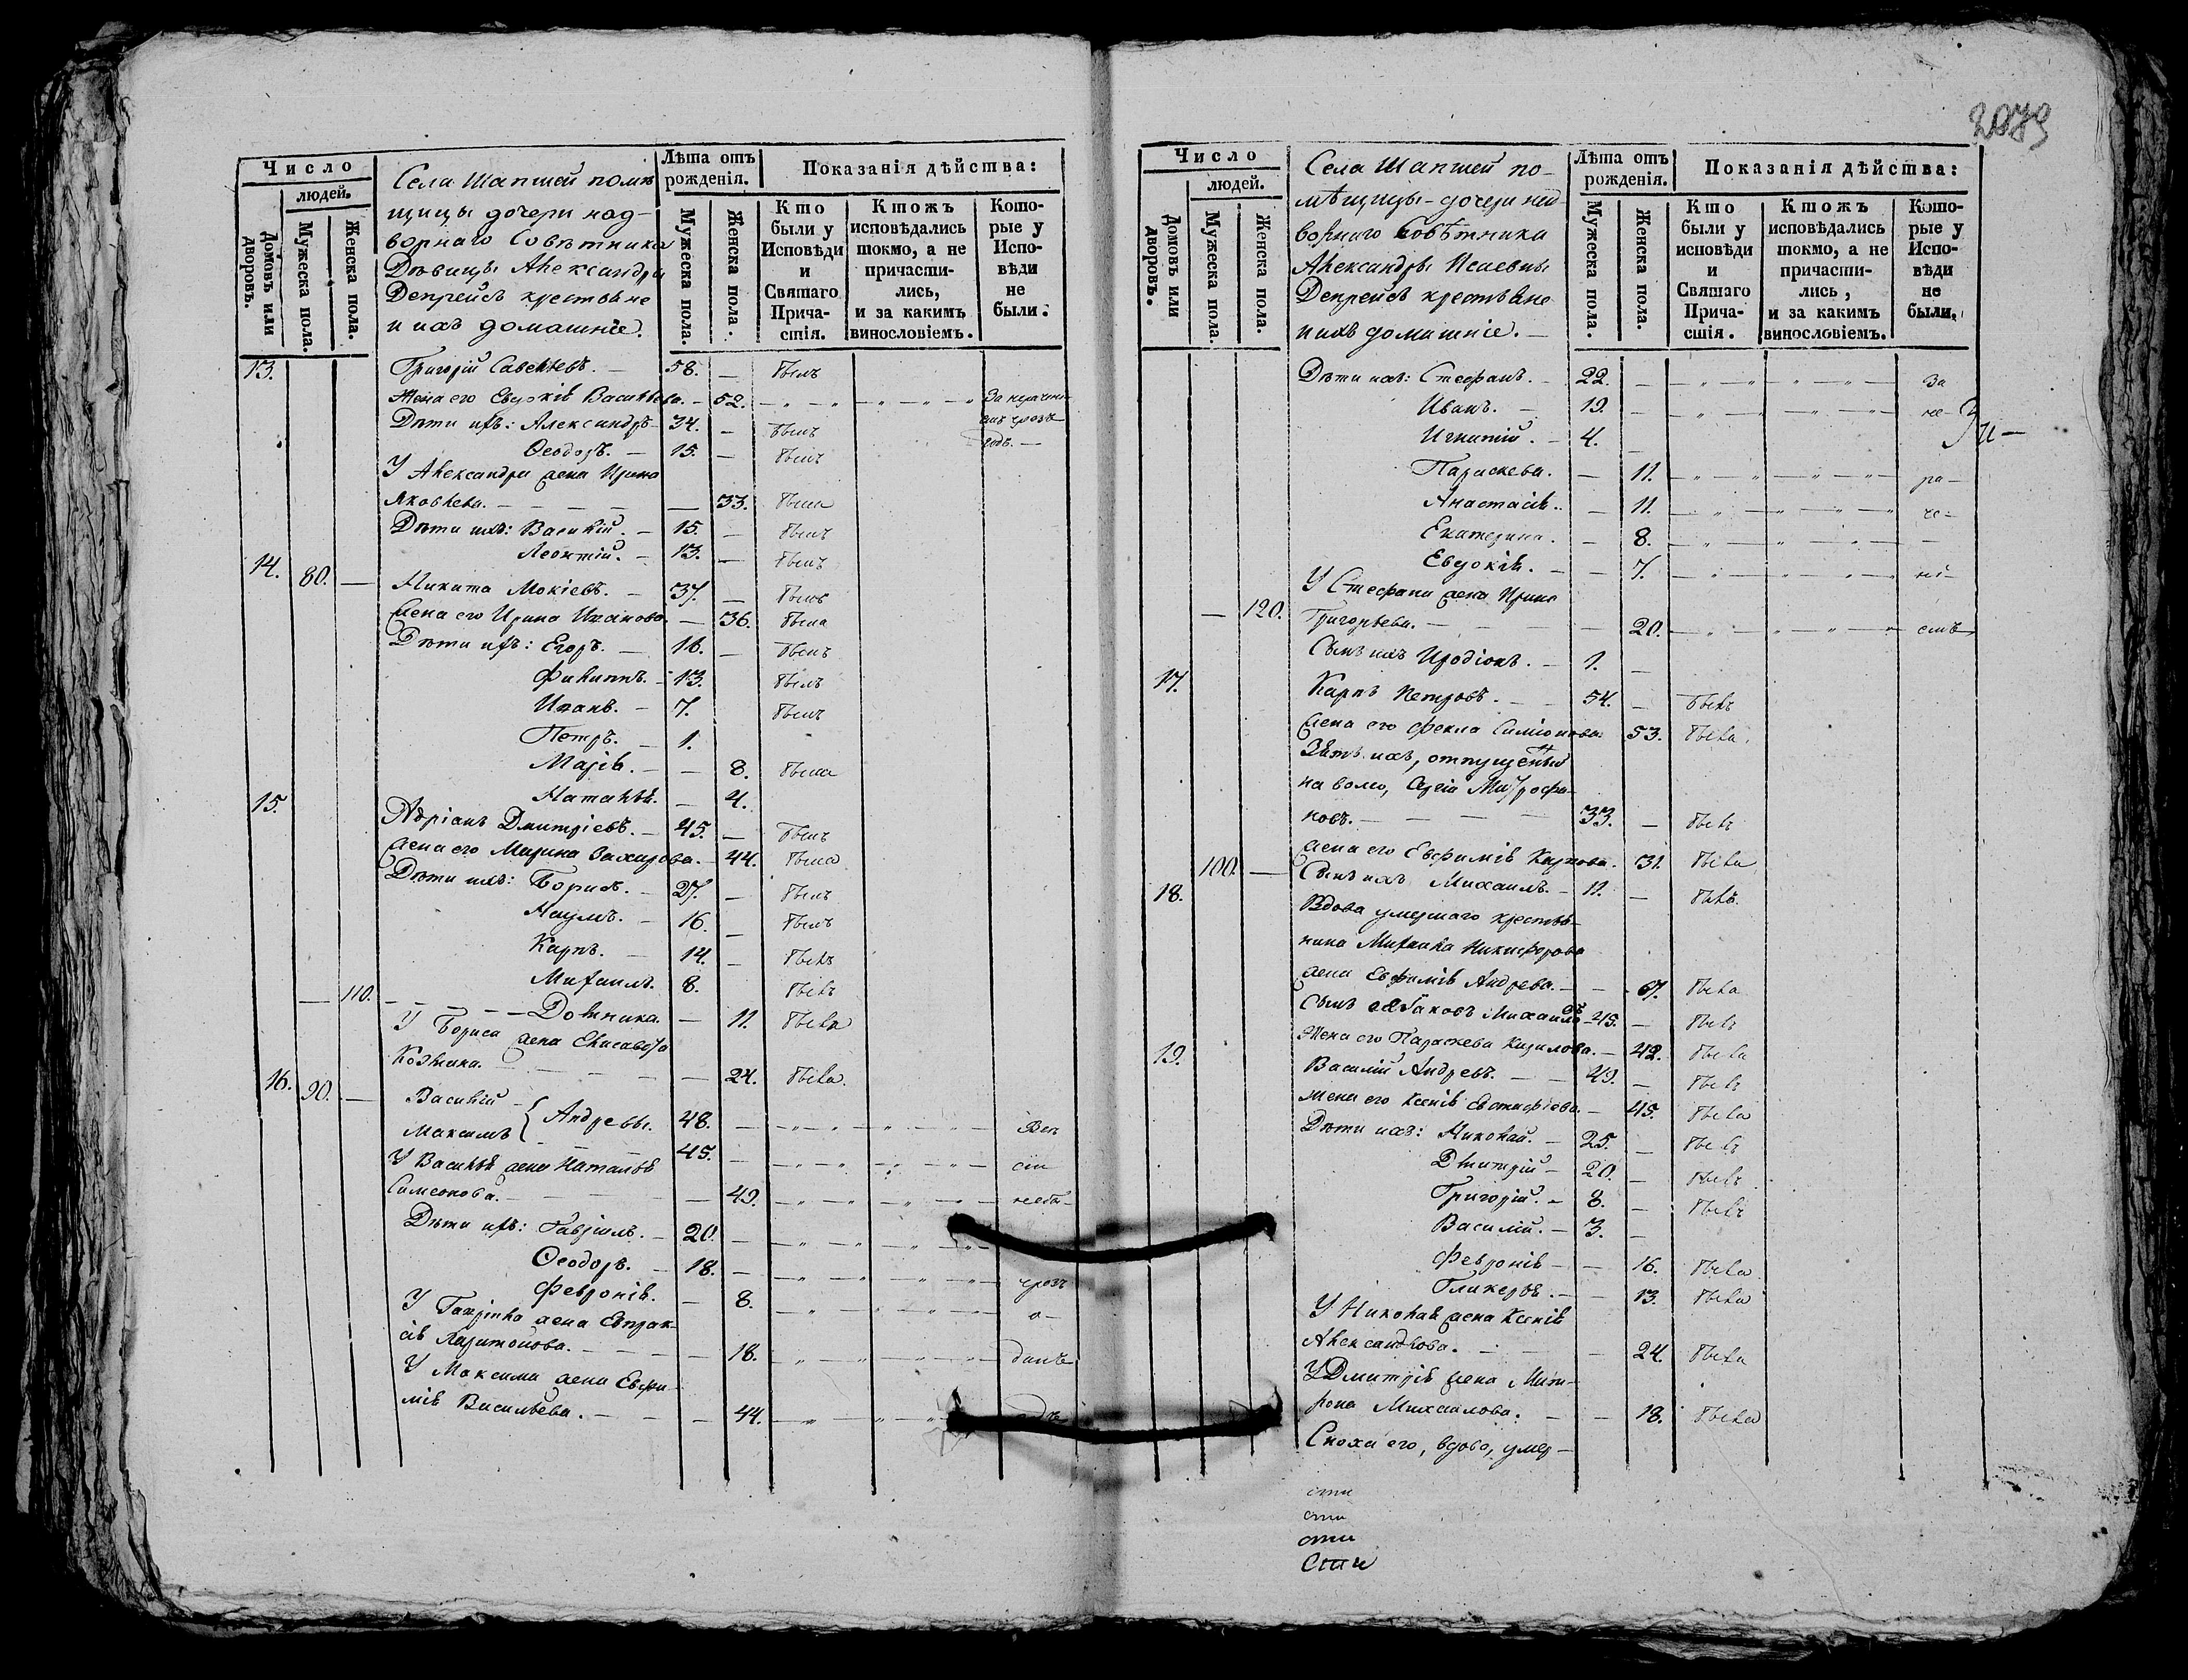 2079
Число
людей.
Домовъ или дворовъ.
Мужеска пола.
Женска пола.
Села Шапшей помѣ
щицы дочери над-
ворнаго Совѣтника
Дѣвицы Александры
Депрейсъ крестьяне
и ихъ домашніе.
Лѣта отъ рожденія.
Мужеска пола.
Женска пола.
Показанія дѣйства:
Кто были у Исповѣди и Святаго Прича-стія.
Ктожъ исповѣдались токмо, а не причасти-лись, и за какимъ винословіемъ.
Кото-рые у Испо-вѣди не были.
13. Григорій Савельевъ. — 58. — былъ
Жена его Евдокія Васильева. — 52. За нерачені-
Дѣти ихъ: Александръ — 34. — былъ
Ѳеодоръ. — 15. — былъ
У Александра жена Ирина
Яковлева. — 33. была
Дѣти ихъ: Василій. — 15. — былъ
Леонтій. — 13. — былъ
14. 80. — Никита Мокіевъ. — 37. — былъ
Жена его Ирина Иванова. — 36. была
Дѣти ихъ: Егоръ. — 16. — былъ
Филиппъ. — 13. былъ
Иванъ. — 7. былъ
Петръ. — 1.
Марія. — — 8. была
Наталья. — 4.
15. Адріанъ Дмитріевъ. — 45. — былъ
Жена его Марина Захарова. — 44. была
Дѣти ихъ: Борисъ. — 27. — былъ
Наумъ. — 16. — былъ
Карпъ. — 14. — былъ
Михаилъ. 8. былъ
— 110. — Домника. — 11. была
У Бориса жена Елисавета
Козьмина. — 24. была.
16. 90. — Василій
Максимъ } Андреевы. 48. —
45. —
У Василья жена Наталья
Симеонова. — 49.
Дѣти ихъ: Гавріилъ. — 20. —
Ѳеодоръ. — 18. — чрезъ
Февронія. — 8.
У Гавріила жена Евпрак-
сія Харитонова. — 18.
У Максима жена Евфи-
мія Васильева. — 44.
Число
людей.
Домовъ или дворовъ.
Мужеска пола.
Женска пола.
Села Шапшей по-
мѣщицы-дочери над
ворнаго Совѣтника
Александры Исаевны
Депрейсъ крестьяне
и ихъ домашніе. —
Лѣта отъ рожденія.
Мужеска пола.
Женска пола.
Показанія дѣйства:
Кто были у исповѣди и Святаго Прича-стія.
Ктожъ исповѣдались токмо, а не причасти-лись, и за какимъ винословіемъ.
Кото-рые у Испо-вѣди не были.
Дѣти ихъ: Стефанъ. — 22. — За
Иванъ. — 19. — не-
Игнатій. — 4.
Параскева. — 11. ра-
Анастасія. — 11. че-
Екатерина. — 8. —
Евдокія. — 7. ні-
У Стефана жена Ирина
— 120. Григорьева. — 20. емъ
Сынъ ихъ Иродіонъ. — 1. —
17. Карпъ Петровъ. — 54. — былъ
Жена его Фекла Симіонова. 53. была.
Зять ихъ, отпущенный
на волю, Сергій Митрофа-
новъ. — 33. — былъ
Жена его Евфимія Карпова. 31. была
100. — Сынъ ихъ Михаилъ. — 11. — былъ.
18. Вдова умершаго крестья-
нина Михаила Никифорова
жена Евфимія Андреева. — 67. была
Сынъ ея Яковъ Михайловъ — 45. — былъ
Жена его Параскева Кирилова. — 42. была
19. Василій Андреевъ. — 49. — былъ
Жена его Ксенія Евстифіева. — 45. была
Дѣти ихъ: Николай. — 25. — былъ
Дмитрій — 20. — былъ
Григорій. — 8. — былъ
Василій. — 3. —
Февронія — — 16. была
Гликерія. — — 13. была
У Николая жена Ксенія
Александрова. — 24. была
У Дмитрія жена Мит-
рона Михаилова. — 18. была
Сноха его, вдова, умер-
сти
сти
сти
Сти